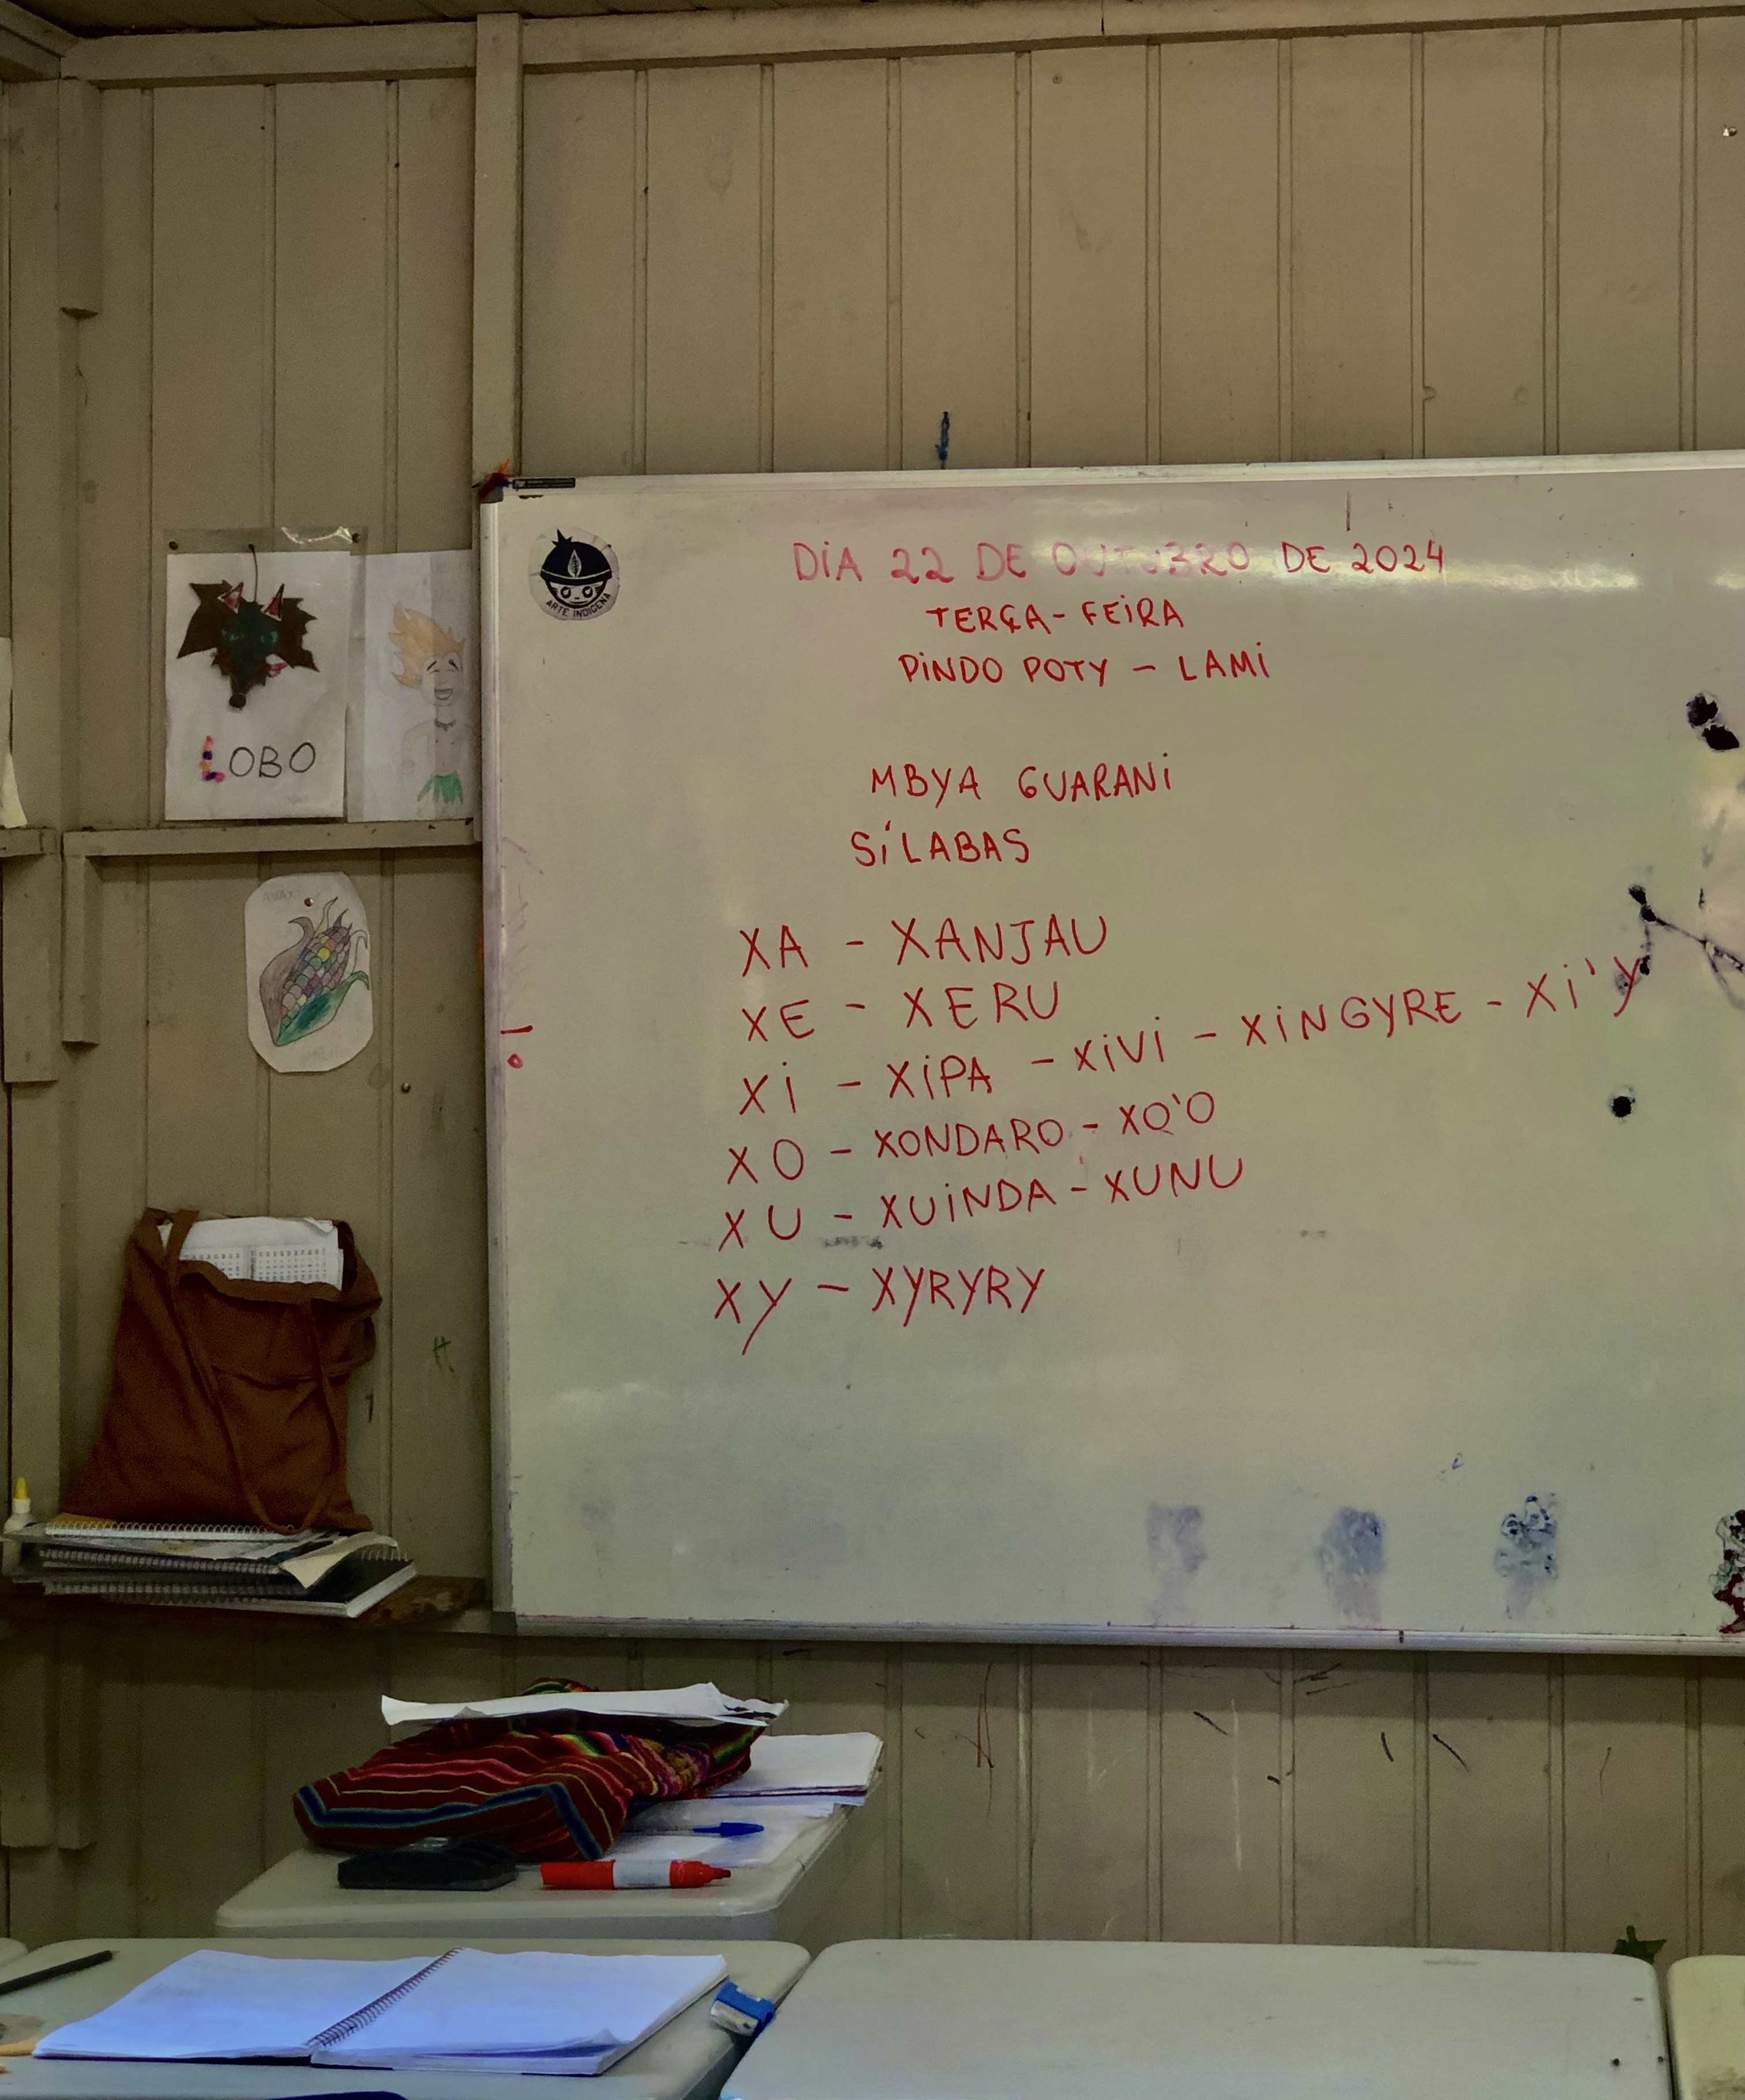 DiA 22 DE OUTUBRO DE 2024
TERÇA-FEiRA
PiNDO POTY - LAMi
MBYA GUARANi
SÍLABAS
XA - XANJAU
XE - XERU
Xi - XiPA - XiVi - XiNGYRE - Xi'Y
XO - XONDARO - XO'O
XU - XUiNDA - XUNU
XY - XYRYRY
ARTE INDÍGENA
LOBO